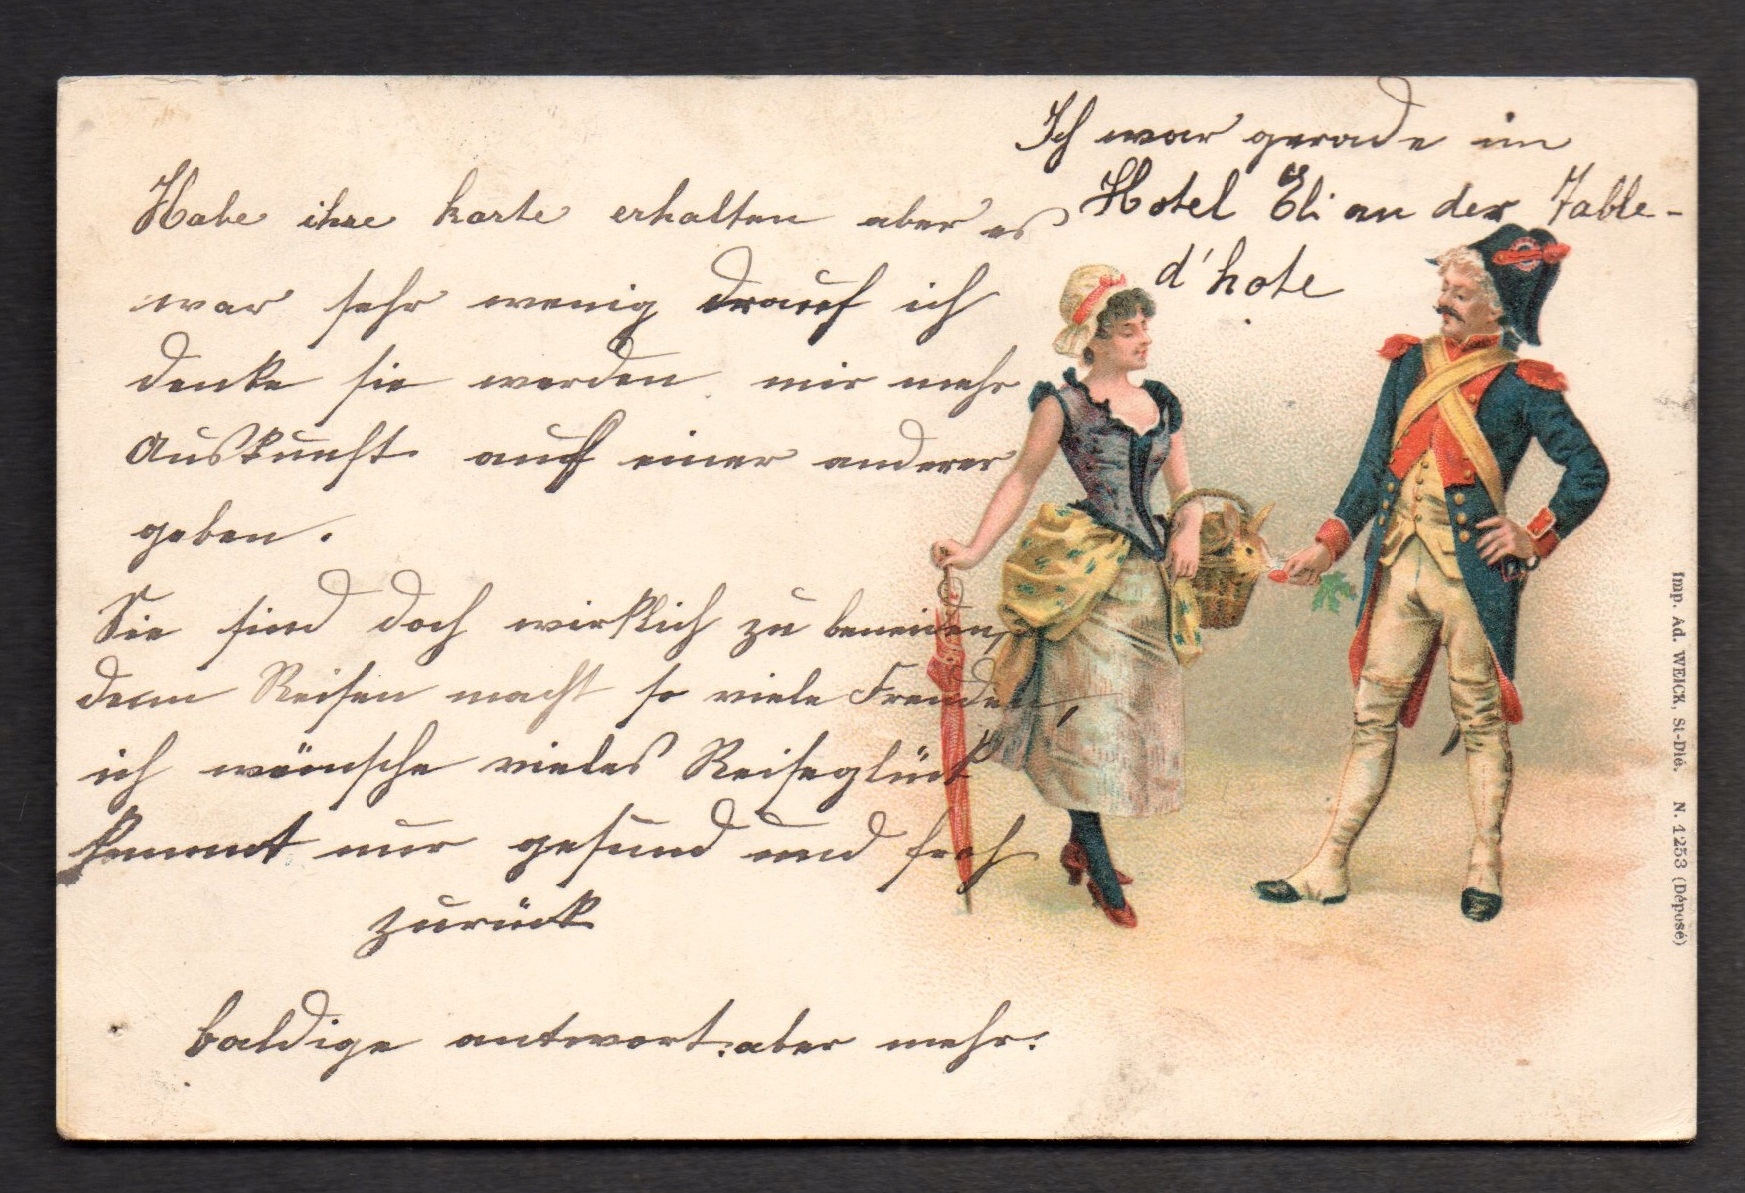 Ich war gerade im
Hotel Eli an der Table-
d'hote
Habe ihre karte erhalten aber es
war sehr wenig drauf ich
denke sie werden mir mehr
Auskunft auf einer anderer
geben.
Sie sind doch wirklich zu beneiden,
denn Reisen macht so viele Freuden,
ich wünsche vieles Reiseglück
kommt nur gesund und froh
zurück
baldige antwort: aber mehr:
Imp. Ad. WEICK, St-Dié. N. 1253 (Déposé)